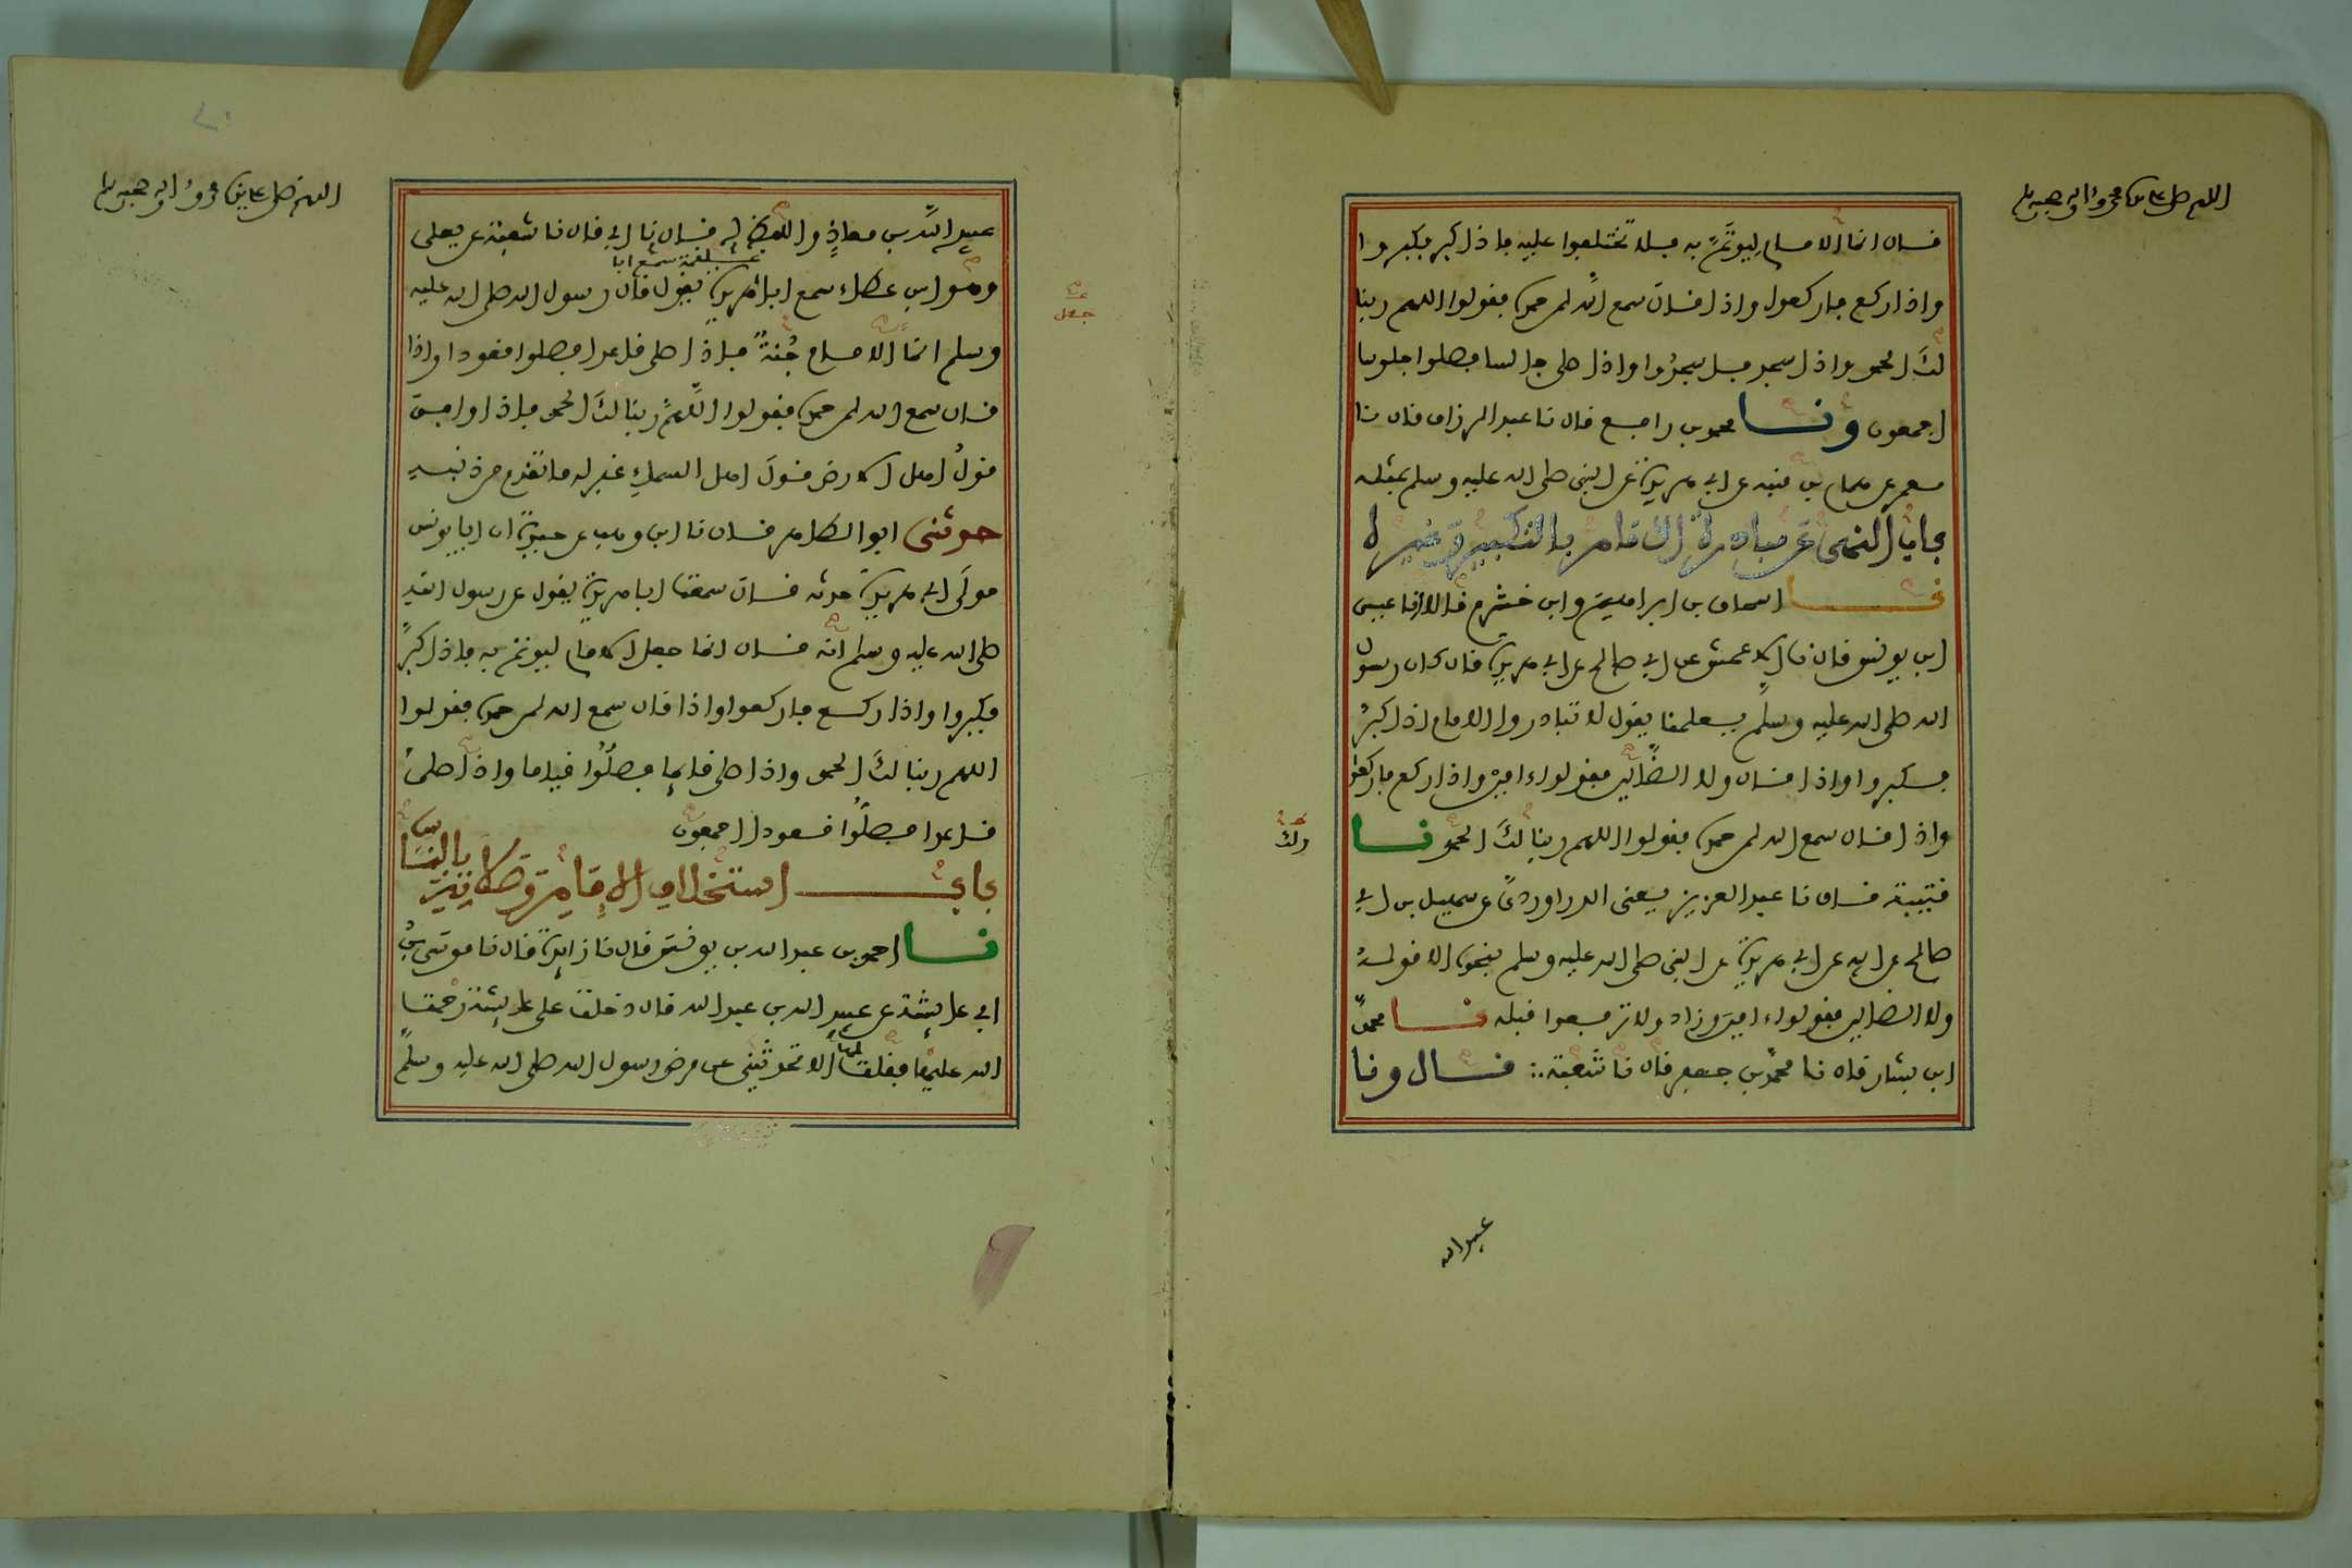 اللهم صل على سيدنا محمد واله وصحبه وسلم
قال انما الامام ليوتم به فلا تختلفوا عليه فاذا كبر فكبروا
واذا ركع فاركعوا واذا قال سمع الله لمن حمده فقولوا اللهم ربنا
لك الحمد واذا سجد فاسجدوا واذا صلى جالسا فصلوا جلوسا
اجمعون ونا محمد بن رافع قال نا عبد الرزاق قال نا
معمر عن همام بن منبه عن ابي هريرة عن النبي صلى الله عليه وسلم بمثله
باب النهي عن مبادرة الامام بالتكبير وغيره
نا اسحاق بن ابراهيم وابن خشرم قالا انا عيسى
ابن يونس قال نا الاعمش عن ابي صالح عن ابي هريرة قال كان رسول
الله صلى الله عليه وسلم يعلمنا يقول لا تبادروا الامام اذا كبر
فكبروا واذا قال ولا الضالين فقولوا ءامين واذا ركع فاركعوا
واذا قال سمع الله لمن حمده فقولوا اللهم ربنا لك الحمد نا
ولك
قتيبة قال نا عبد العزيز يعنى الدراوردي عن سهيل بن ابي
صالح عن ابيه عن ابي هريرة عن النبي صلى الله عليه وسلم بنحوه الا قوله
ولا الضالين فقولوا ءامين وزاد ولا ترفعوا قبله نا محمد
ابن بشار قال نا محمد بن جعفر قال نا شعبة ∴ قال ونا
عبيد الله
اللهم صل على سيدنا محمد واله وصحبه وسلم
عبيد الله بن معاذ واللفظ له قال نا ابي قال نا شعبة عن يعلى
علقمة سمع ابا
وهو ابن عطاء سمع ابا هريرة يقول قال رسول الله صلى الله عليه
جعل
وسلم انما الامام جنة فاذا صلى قاعدا فصلوا قعودا واذا
قال سمع الله لمن حمده فقولوا اللهم ربنا لك الحمد فاذا وافق
قول اهل الارض قول اهل السماء غفر له ما تقدم من ذنبه
حدثنى ابو الطاهر قال نا ابن وهب عن حيوة ان ابا يونس
مولى ابي هريرة حدثه قال سمعت ابا هريرة يقول عن رسول الله
صلى الله عليه وسلم انه قال انما جعل الامام ليوتم به فاذا كبر
فكبروا واذا ركع فاركعوا واذا قال سمع الله لمن حمده فقولوا
اللهم ربنا لك الحمد واذا صلى قايما فصلوا قياما واذا صلى
قاعدا فصلوا قعودا اجمعون
باب استخلاف الامام وصلاته بالناس
نا احمد بن عبد الله بن يونس قال نا زايدة قال نا موسى بن
ابي عايشة عن عبيد الله بن عبد الله قال دخلت على عايشة رحمة
الله عليها فقلت لها الا تحدثيني عن مرض رسول الله صلى الله عليه وسلم